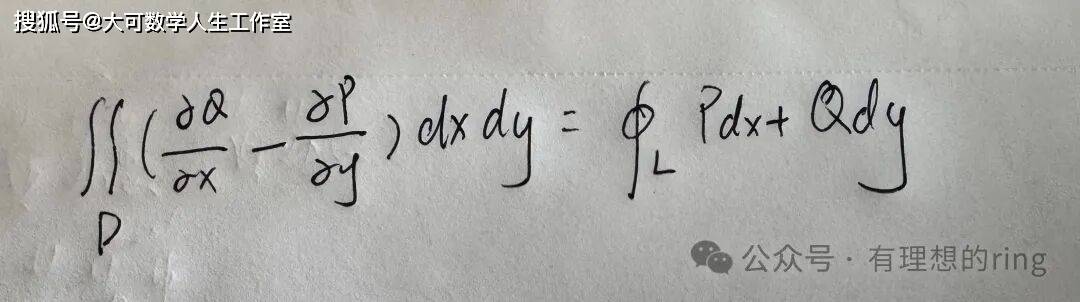 搜狐号@大可数学人生工作室
∬_D (∂Q/∂x − ∂P/∂y) dx dy = ∮_L Pdx + Qdy
公众号 · 有理想的ring